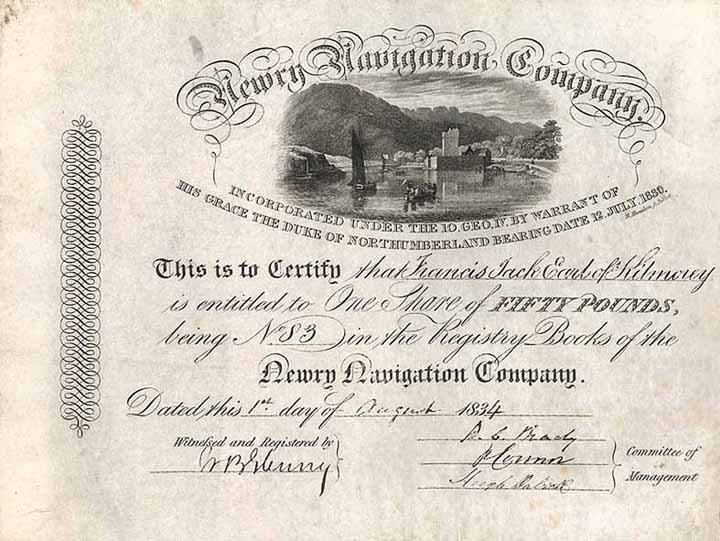 Newry Navigation Company.
INCORPORATED UNDER THE 10. GEO. IV. BY WARRANT OF
HIS GRACE THE DUKE OF NORTHUMBERLAND BEARING DATE 12 JULY, 1830.
This is to Certify that Francis Jack Earl of Kilmorey
is entitled to One Share of FIFTY POUNDS,
being No. 83 in the Registry Books of the
Newry Navigation Company.
Dated this 1st day of August 1834
Witnessed and Registered by
Brady
Committee of
Management